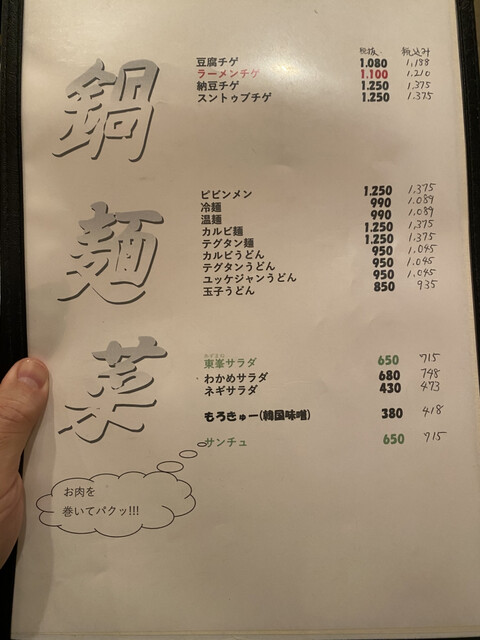 税抜 税込み
鍋
豆腐チゲ 1.080 1,188
ラーメンチゲ 1.100 1,210
納豆チゲ 1.250 1,375
スントゥブチゲ 1.250 1.375
麺
ビビンメン 1.250 1,375
冷麺 990 1.089
温麺 990 1.089
カルビ麺 1.250 1,375
テグタン麺 1.250 1.375
カルビうどん 950 1.045
テグタンうどん 950 1.045
ユッケジャンうどん 950 1.045
玉子うどん 850 935
菜
東峯サラダ 650 715
わかめサラダ 680 748
ネギサラダ 430 473
もろきゅー(韓国味噌) 380 418
サンチュ 650 715
お肉を
巻いてパクッ!!!